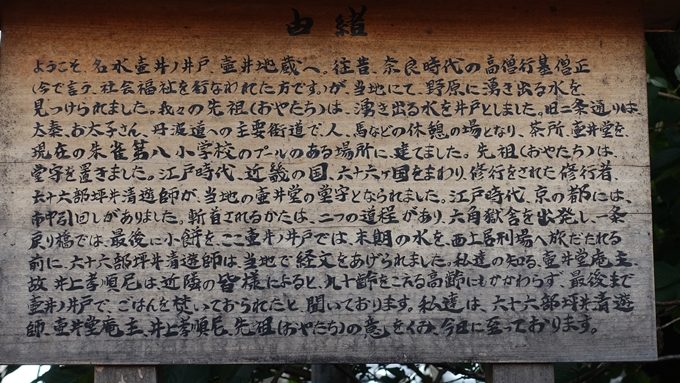 由緒
ようこそ、名水壺井ノ井戸、壺井地蔵へ。往昔、奈良時代の高僧行基僧正
(今で言う、社会福祉を行なわれた方です。)が、当地にて、野原に湧き出る水を
見つけられました。我々の先祖(おやたち)は、湧き出る水を井戸としました。旧二条通りは
太秦、お太子さん、丹波道への主要街道で、人、馬などの休憩の場となり、茶所、壺井堂を、
現在の朱雀第八小学校のプールのある場所に、建てました。先祖(おやたち)は、
堂守を置きました。江戸時代、近畿の国、六十六ヶ国をまわり、修行をされた修行者、
六十六部坪井清遊師が、当地の壺井堂の堂守となられました。江戸時代、京の都には、
市中引回しがありました。斬首されるかたは、二つの道程があり、六角獄舎を出発し、一条
戻り橋では、最後に小餅を、ここ壺井ノ井戸では、末期の水を、西土居刑場へ旅だたれる
前に、六十六部坪井清遊師は当地で経文をあげられました。私達の知る、壺井堂庵主
故井上孝順尼は、近隣の皆様によると、九十齢をこえる高齢にもかかわらず、最後まで
壺井ノ井戸で、ごはんを焚いておられたと、聞いております。私達は、六十六部坪井清遊
師、壺井堂庵主、井上孝順尼、先祖(おやたち)の意をくみ、今日に至っております。